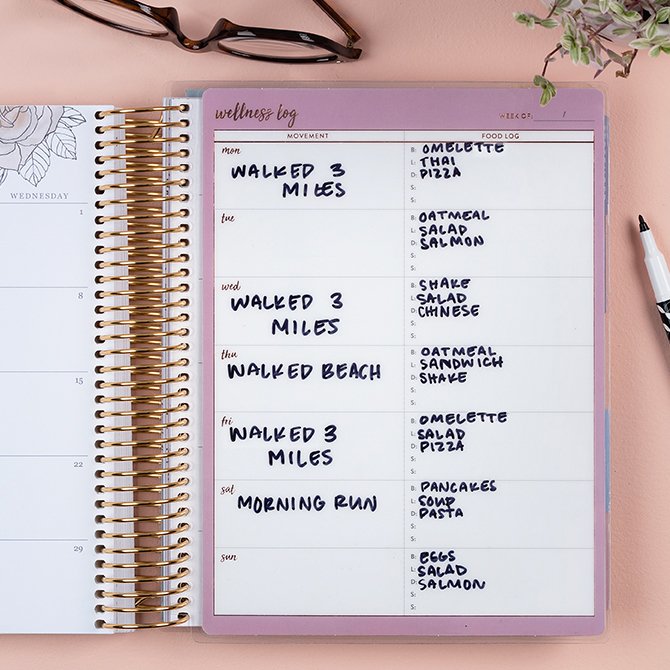 wellness log
WEEK OF:
MOVEMENT
FOOD LOG
mon
WALKED 3
MILES
B: OMELETTE
L: THAI
D: PIZZA
S:
S:
tue
B: OATMEAL
L: SALAD
D: SALMON
S:
S:
wed
WALKED 3
MILES
B: SHAKE
L: SALAD
D: CHINESE
S:
S:
thu
WALKED BEACH
B: OATMEAL
L: SANDWICH
D: SHAKE
S:
S:
fri
WALKED 3
MILES
B: OMELETTE
L: SALAD
D: PIZZA
S:
S:
sat
MORNING RUN
B: PANCAKES
L: SOUP
D: PASTA
S:
S:
sun
B: EGGS
L: SALAD
D: SALMON
S:
S:
WEDNESDAY
1
8
15
22
29